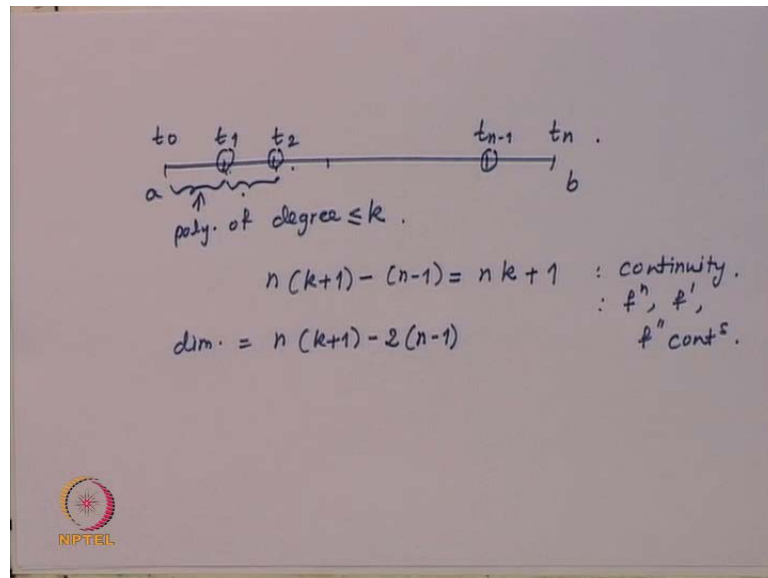 t₀ t₁ t₂ tₙ₋₁ tₙ .
a b
poly. of degree ≤ k .
n (k+1) - (n-1) = n k + 1 : continuity.
: fⁿ, f',
dim. = n (k+1) - 2 (n-1) f" contˢ.
NPTEL